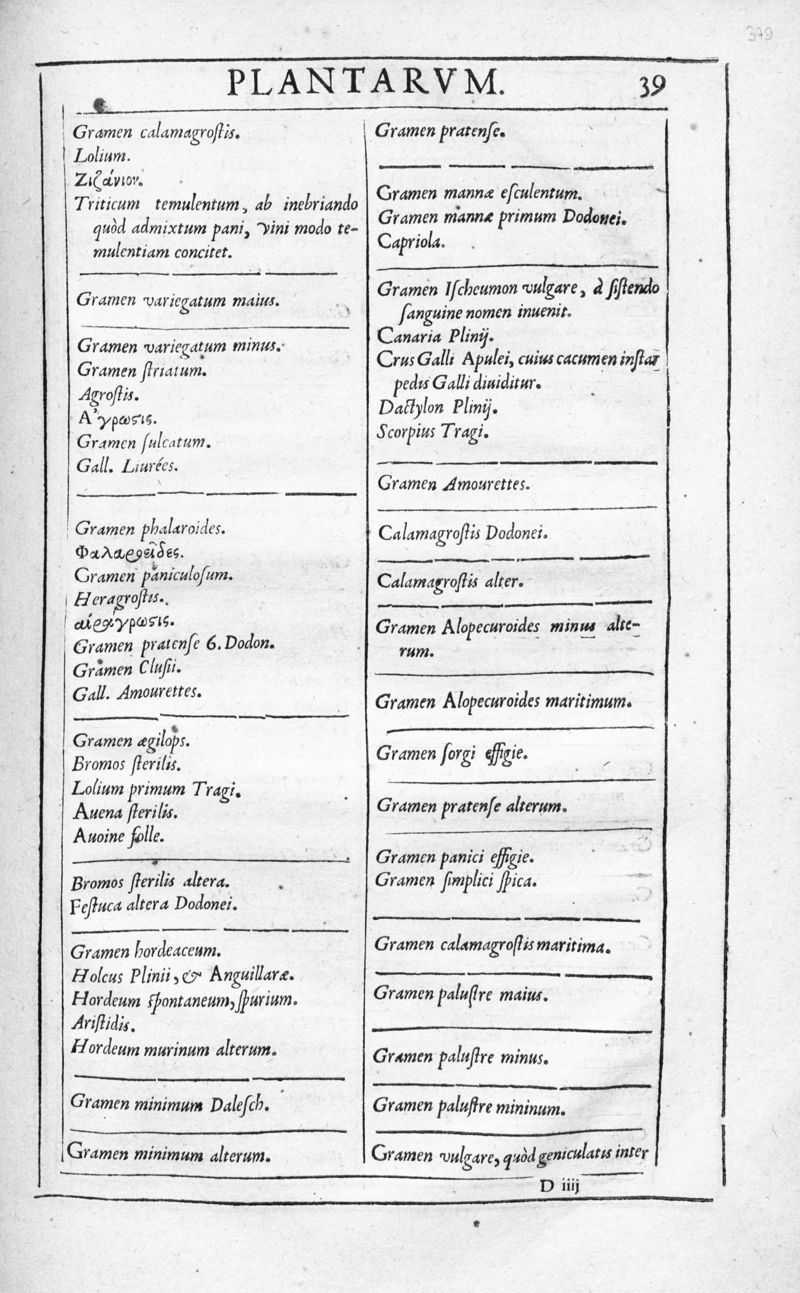 379
PLANTARVM.
39
Gramen calamagroſtis.
Lolium.
Ζιζάνιον.
Triticum temulentum, ab inebriando
quòd admixtum pani, vini modo te-
mulentiam concitet.
Gramen variegatum maius.
Gramen variegatum minus.
Gramen ſtriatum.
Agroſtis.
Α᾿γρωϛις.
Gramen ſulcatum.
Gall. Liurées.
Gramen phalaroides.
Φαλαροεῖδες.
Gramen paniculoſum.
Heragroſtis.
Gramen pratenſe 6. Dodon.
Gramen Cluſii.
Gall. Amourettes.
Gramen ægilops.
Bromos ſterilis.
Lolium primum Tragi.
Auena ſterilis.
Auoine folle.
Bromos ſterilis altera.
Feſtuca altera Dodonei.
Gramen hordeaceum.
Holcus Plinii, & Anguillaræ.
Hordeum ſpontaneum, ſpurium.
Ariſtidis.
Hordeum murinum alterum.
Gramen minimum Daleſch.
Gramen minimum alterum.
Gramen pratenſe.
Gramen mannæ eſculentum.
Gramen mannæ primum Dodonei.
Capriola.
Gramen Iſcheumon vulgare, à ſiſtendo
ſanguine nomen inuenit.
Canaria Plinij.
Crus Galli Apulei, cuius cacumen inſtar
pedis Galli diuiditur.
Dactylon Plinij.
Scorpius Tragi.
Gramen Amourettes.
Calamagroſtis Dodonei.
Calamagroſtis alter.
Gramen Alopecuroides minus alte-
rum.
Gramen Alopecuroides maritimum.
Gramen ſorgi effigie.
Gramen pratenſe alterum.
Gramen panici effigie.
Gramen ſimplici ſpica.
Gramen calamagroſtis maritima.
Gramen paluſtre maius.
Gramen paluſtre minus.
Gramen paluſtre mininum.
Gramen vulgare, quòd geniculatis inter
D iiij